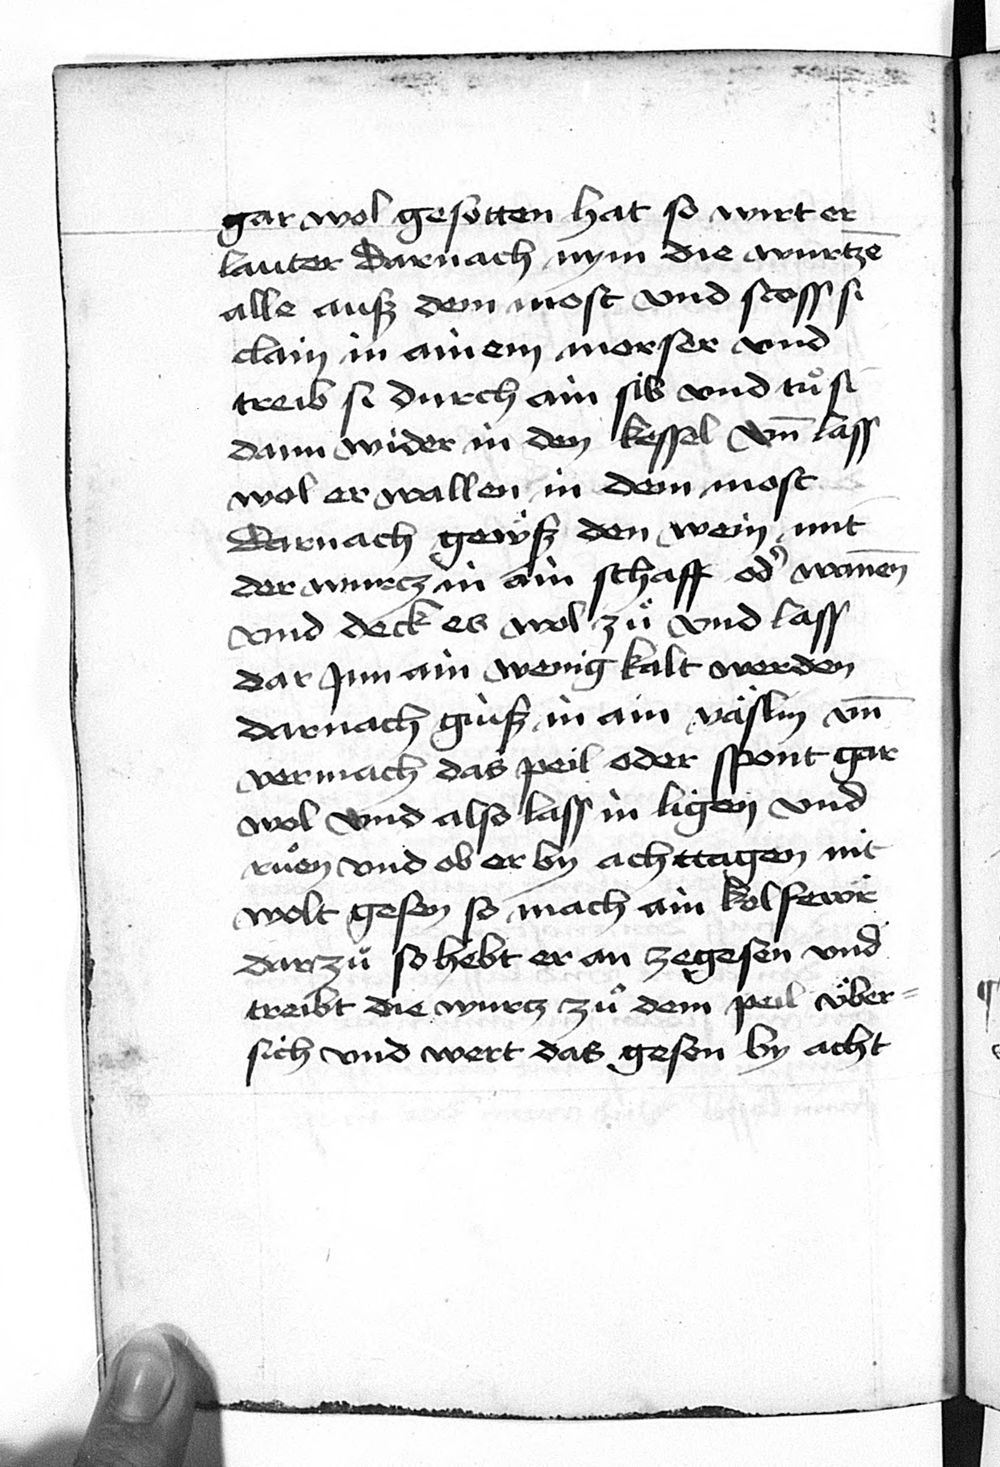 gar wol gesotten hat so wirt er
lauter Darnach nym die wurtzē
alle ausz dem most vnd stoss si
clain in ainem morser vnd
treib si durch ain sib vnd tuͦ si
dann wider in den kessel vn̄ lass
wol erwallen in dem most
Darnach gewsz den wein mit
der wurcz in ain schaff od' wannen
vnd deck es wol zuͦ vnd lass
dar Jnn ain wenig kalt werden
darnach giusz in ain väslin vn̄
vermach das peil oder spont gar
wol vnd also lass in ligen vnd
ruͦen vnd ob er by achttagen nit
wolt gesen so mach ain kolfewr
darzuͦ so hebt er an zegesen vnd
treibt die wurcz zuͦ dem peil vͤber=
sich vnd wert das gesen by acht